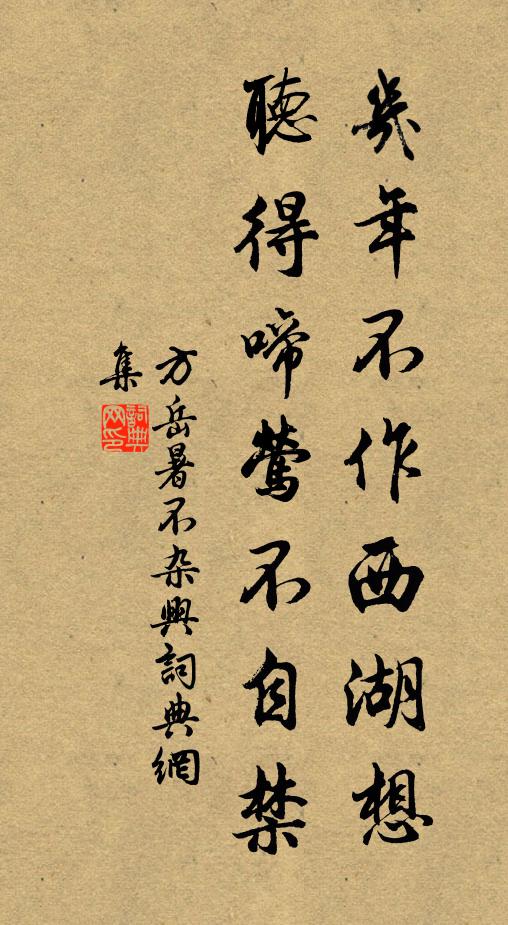 幾年不作西湖想
聽得啼鶯不自禁
方岳暑不杂興詞典網
集
詞典网印